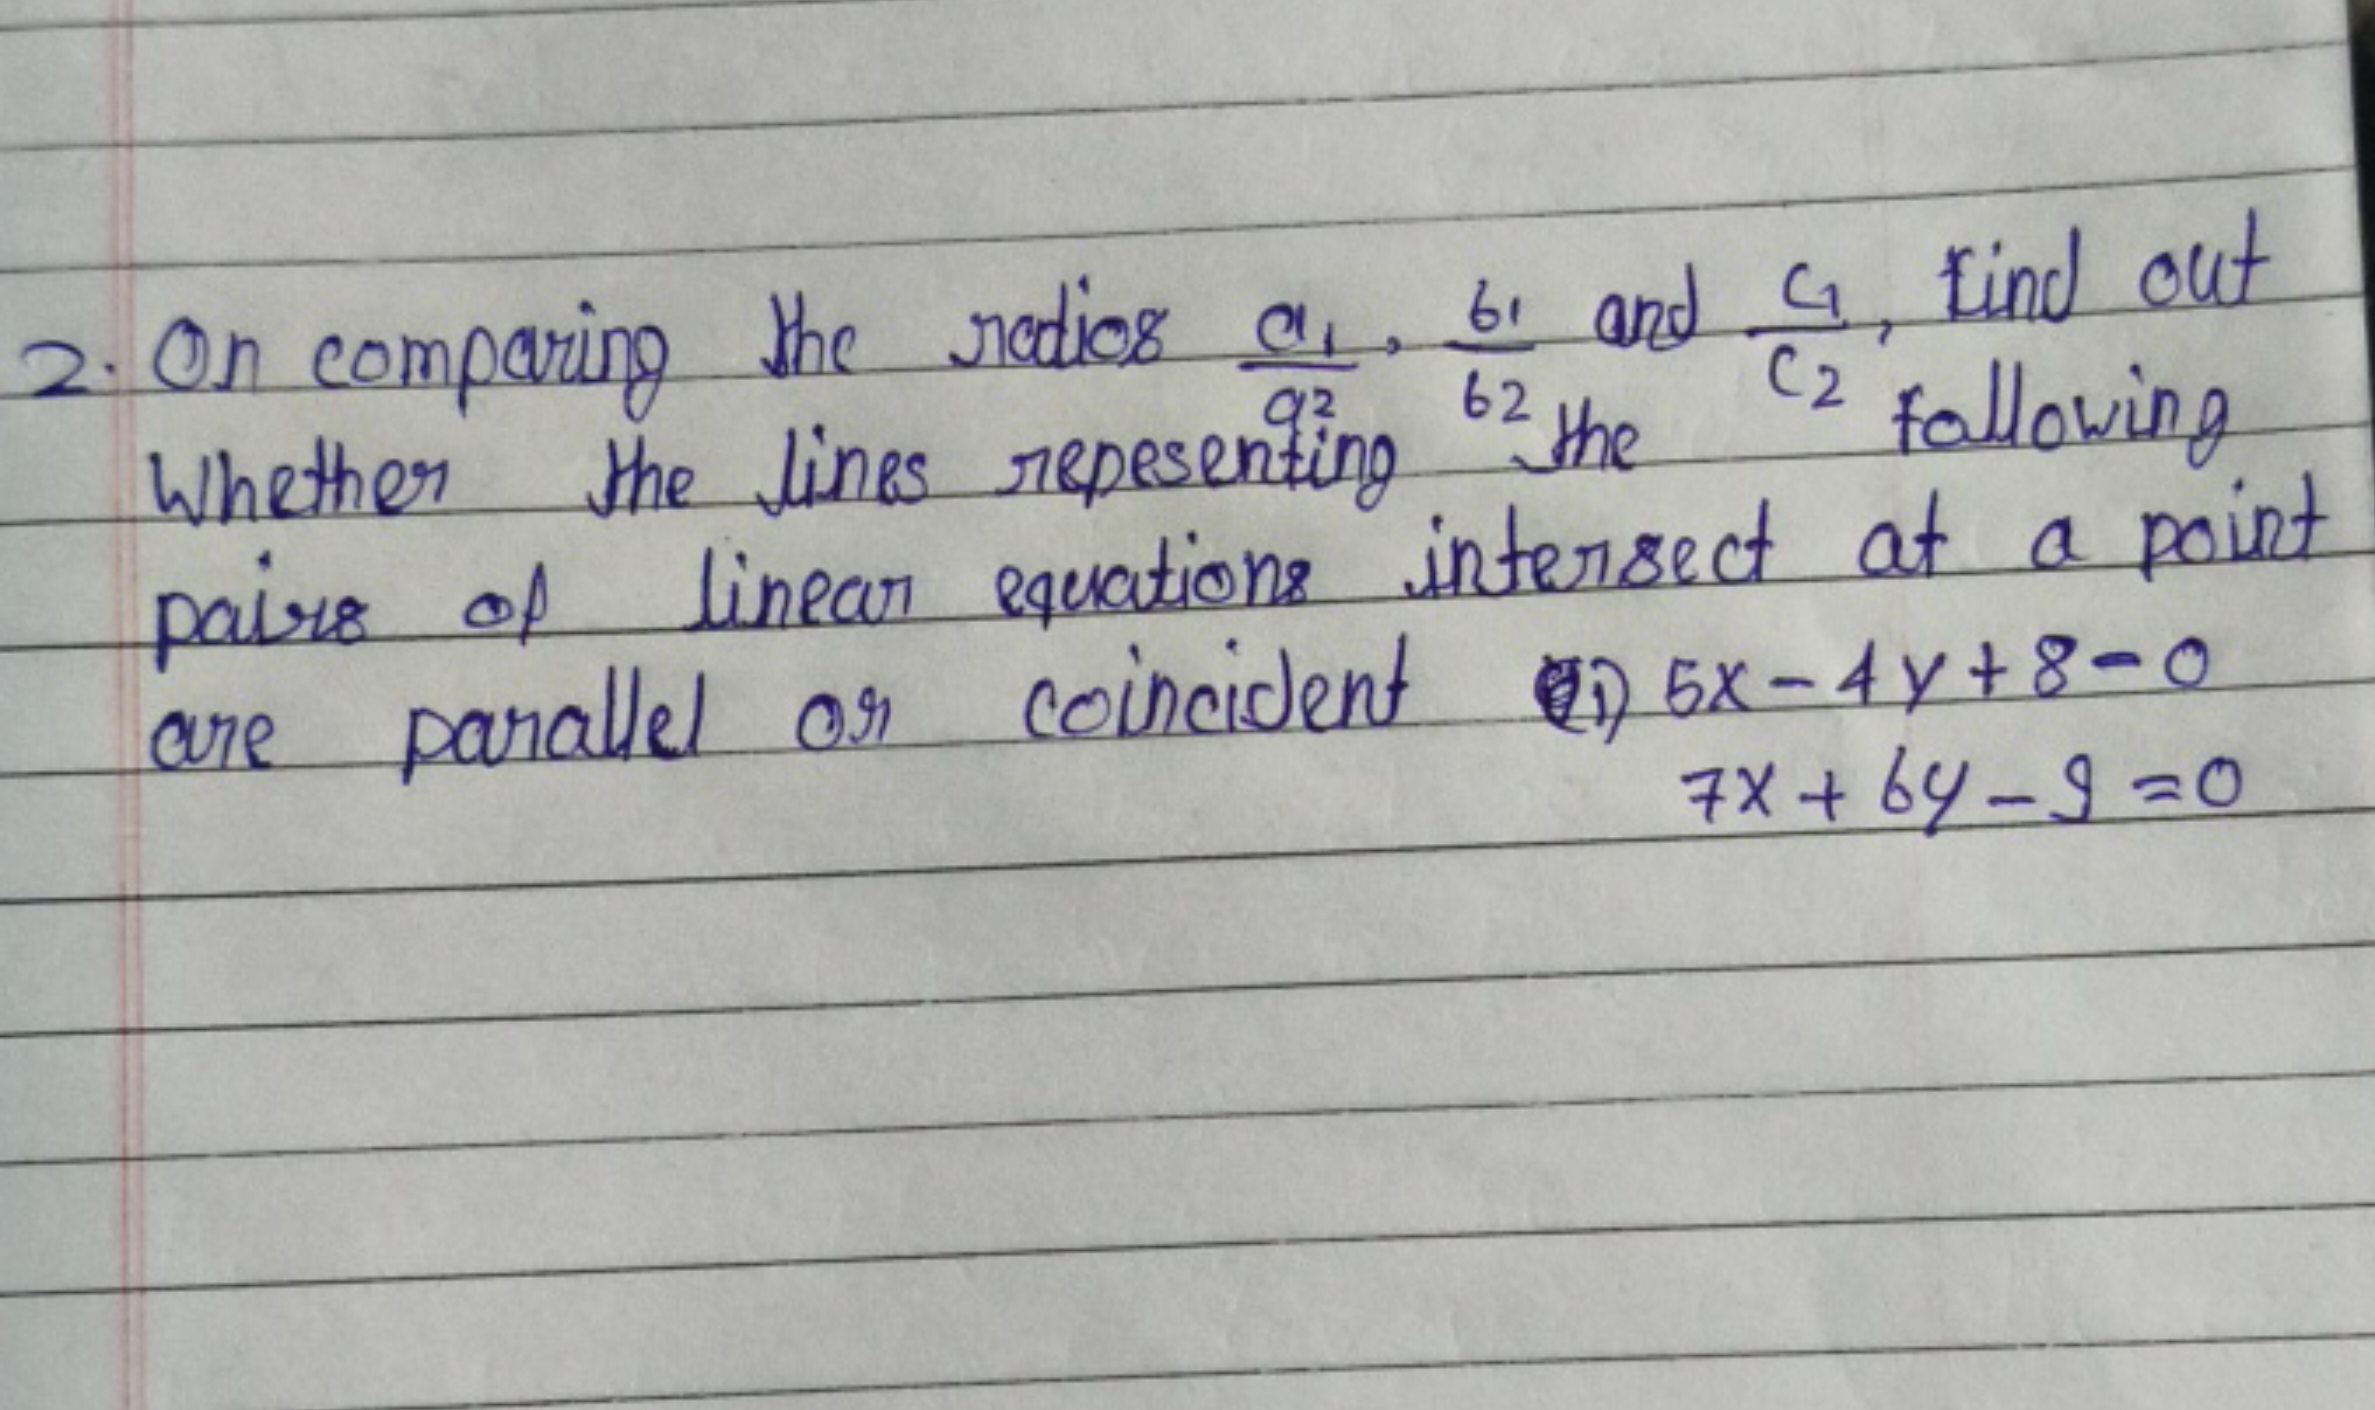 2. On comparing the radios a1/a2, b1/b2 and c1/c2, find out
Whether the lines repesenting the following
pairs of linear equations intersect at a point
are parallel or coincident (i) 5x - 4y + 8 - 0
7x + 6y - 9 = 0